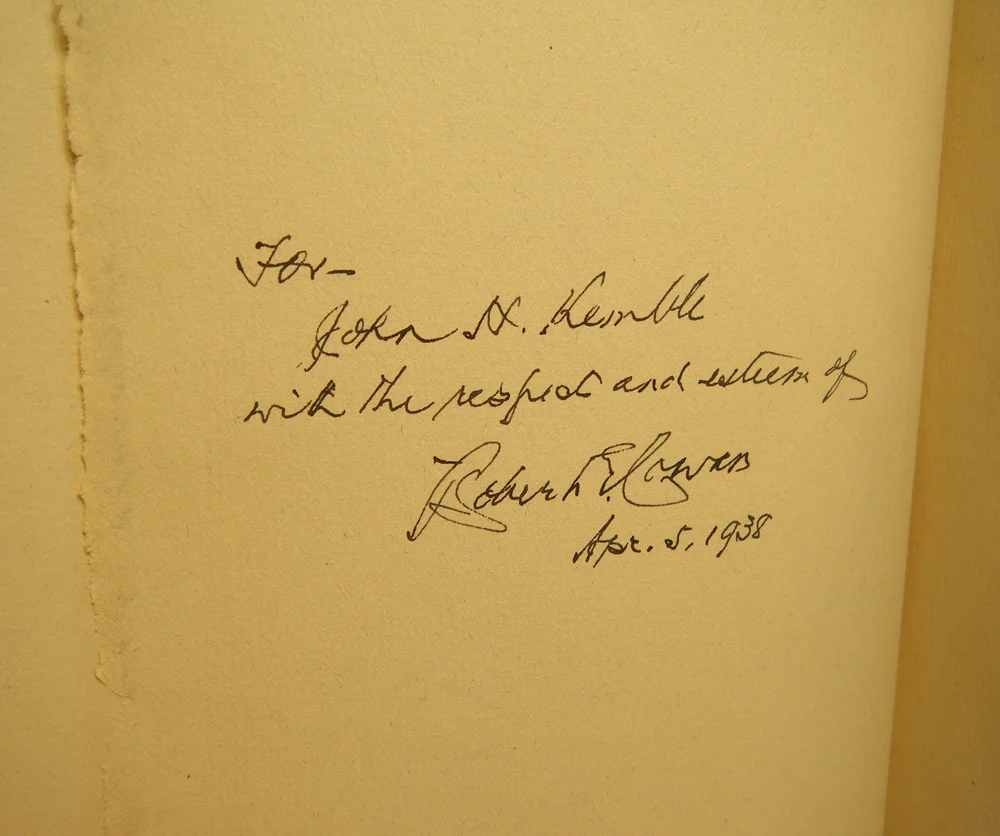 For—
John H. Kemble
with the respect and esteem of
Robert E. Cowan
Apr. 5, 1938